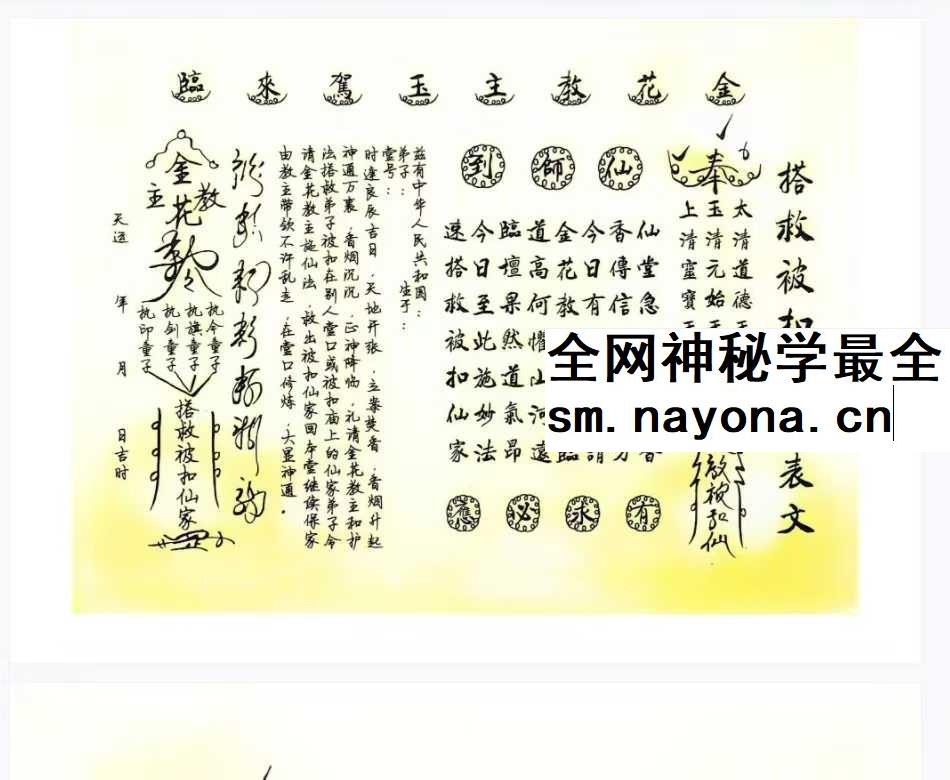 金花教主玉駕來臨
搭救被扣
表文
奉
太清道德
玉清元始
上清靈寶
仙師到
仙堂急
香傳信
今日有 請
金花教 臨
道高何懼山河遠
臨壇果然道氣昂
今日至此施妙法
速搭救被扣仙家
有求必應
兹有中华人民共和国:
弟子: 生于:
堂号:
时逢良辰吉日,天地开张,立案焚香,香烟升起
神通万里,香烟沉沉,正神降临,礼请金花教主和护
法搭救弟子被扣在别人堂口或被扣庙上的仙家弟子今
请金花教主施仙法,救出被扣仙家回本堂继续保家
由教主带领不许乱走,在堂口修炼,大显神通。
金花教主
执令童子
执旗童子
执剑童子
执印童子
搭救被扣仙家
天运 年 月 日吉时
全网神秘学最全
sm.nayona.cn